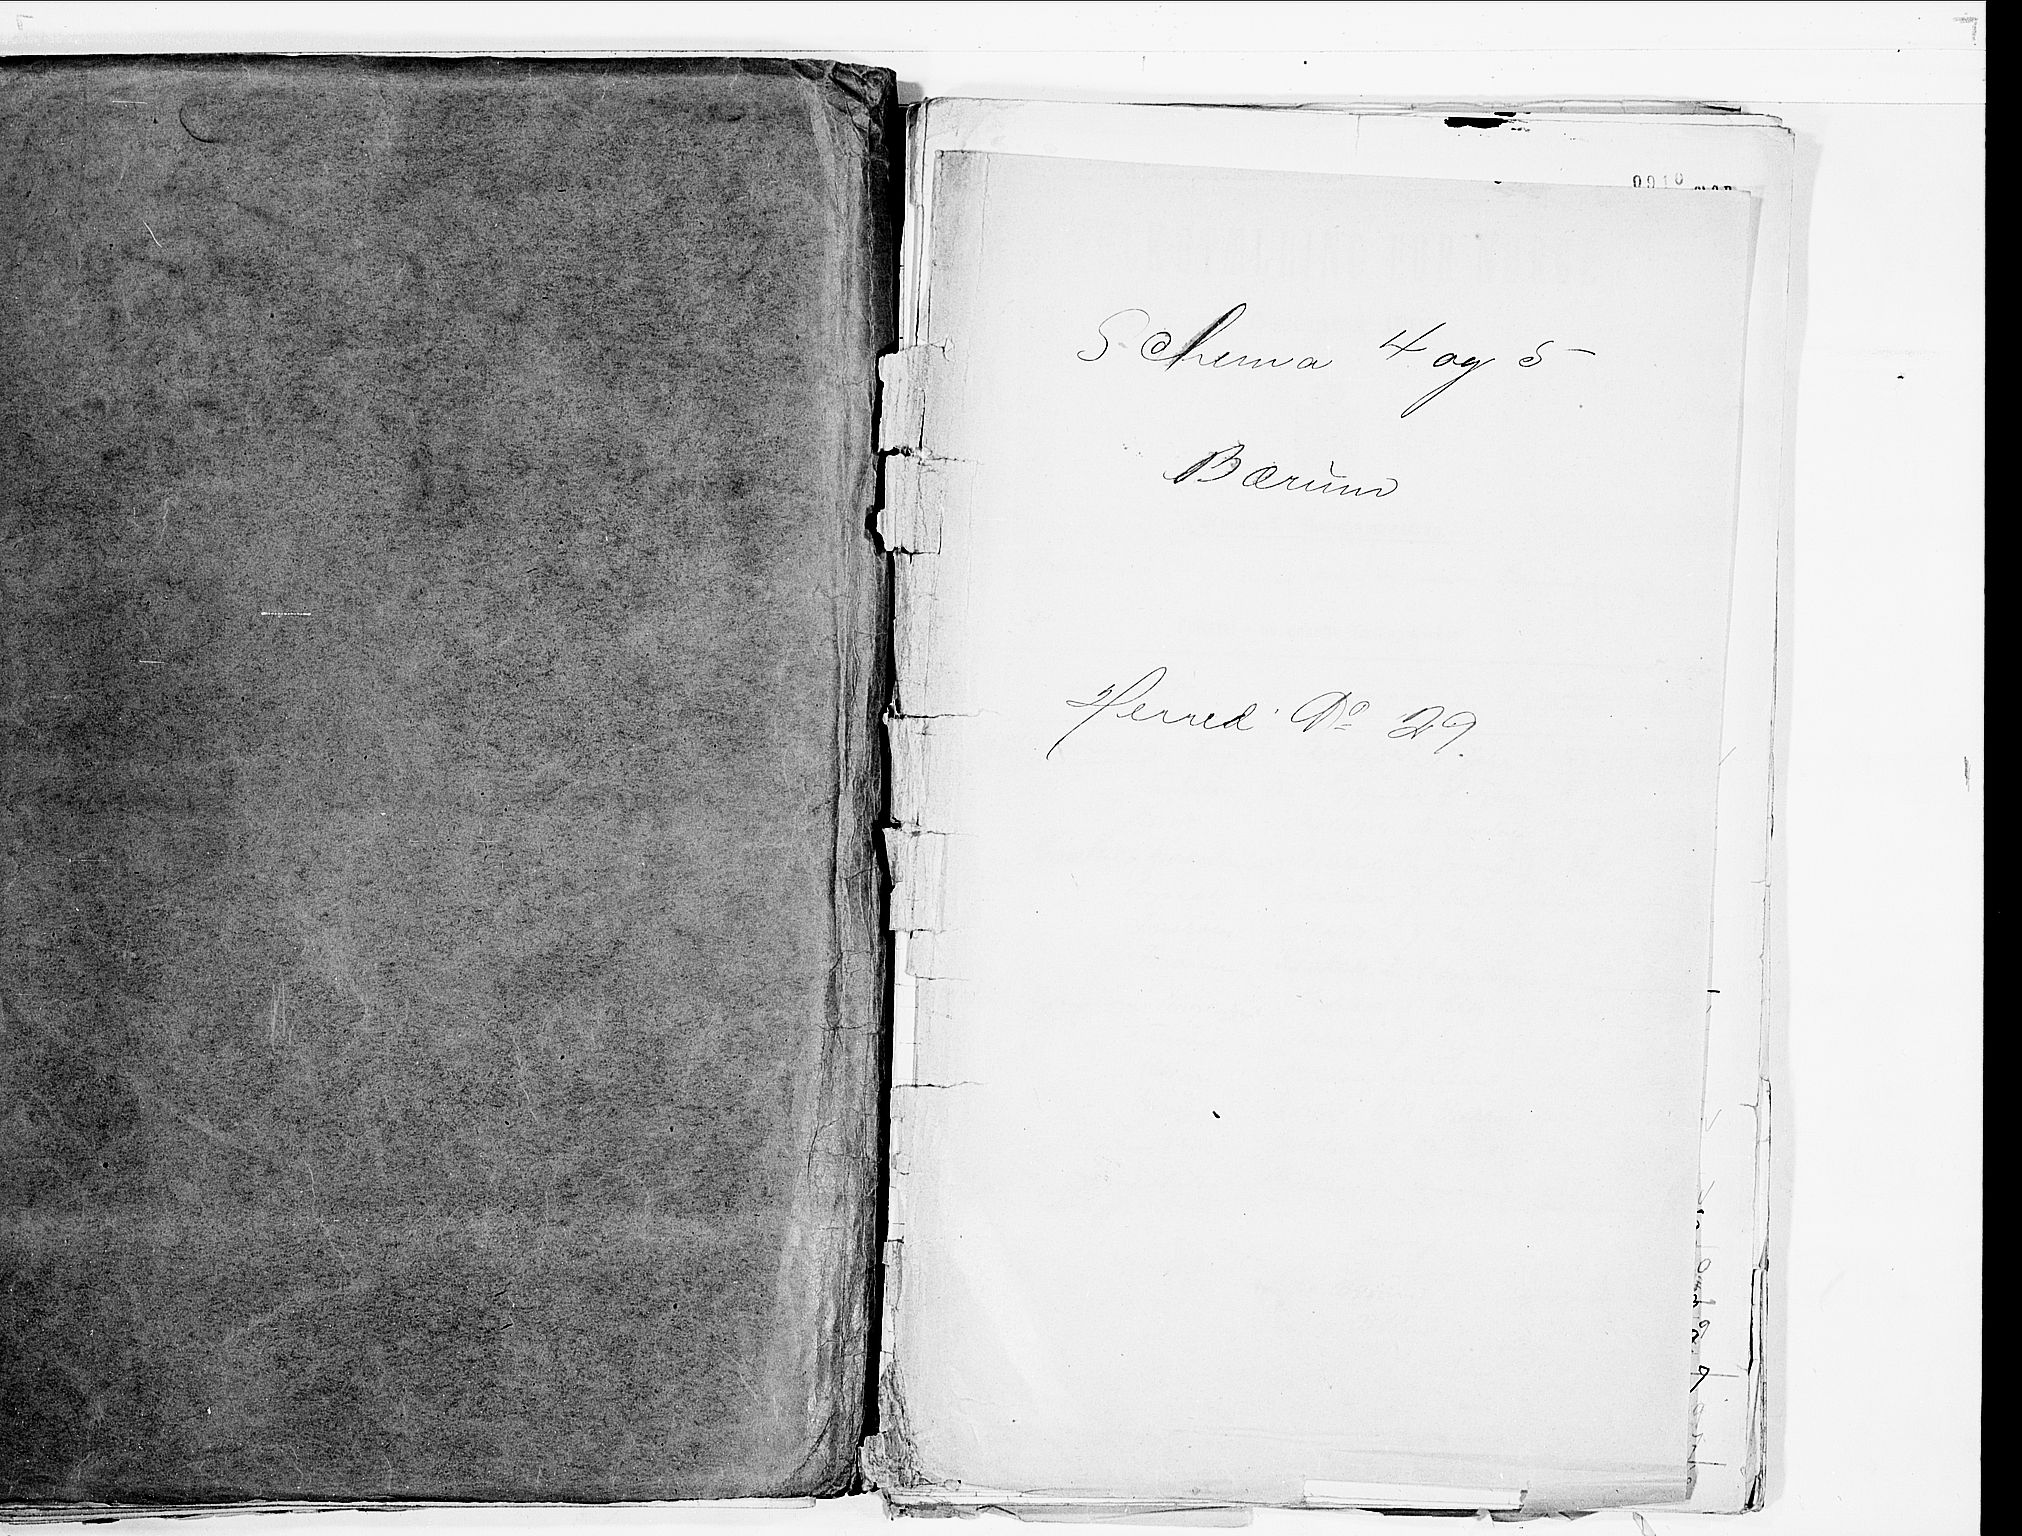 Schema 4 og 5
Bærum
Herred No 29.